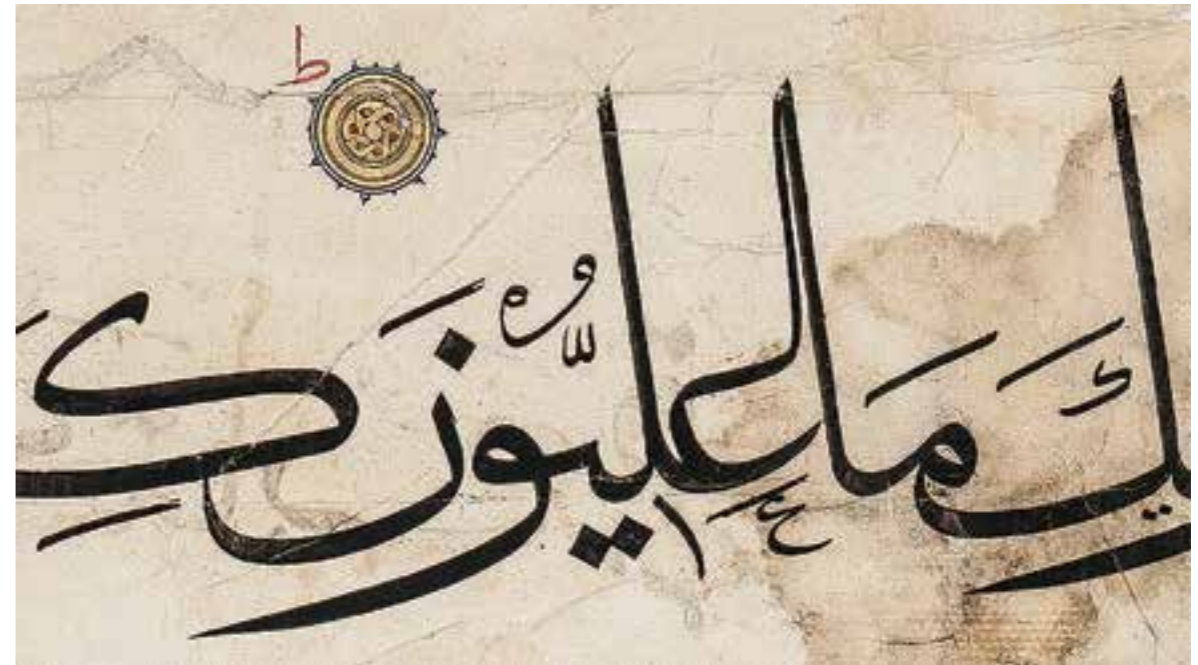 ط
يكَ مَا عِلِّيُّونَ كِ